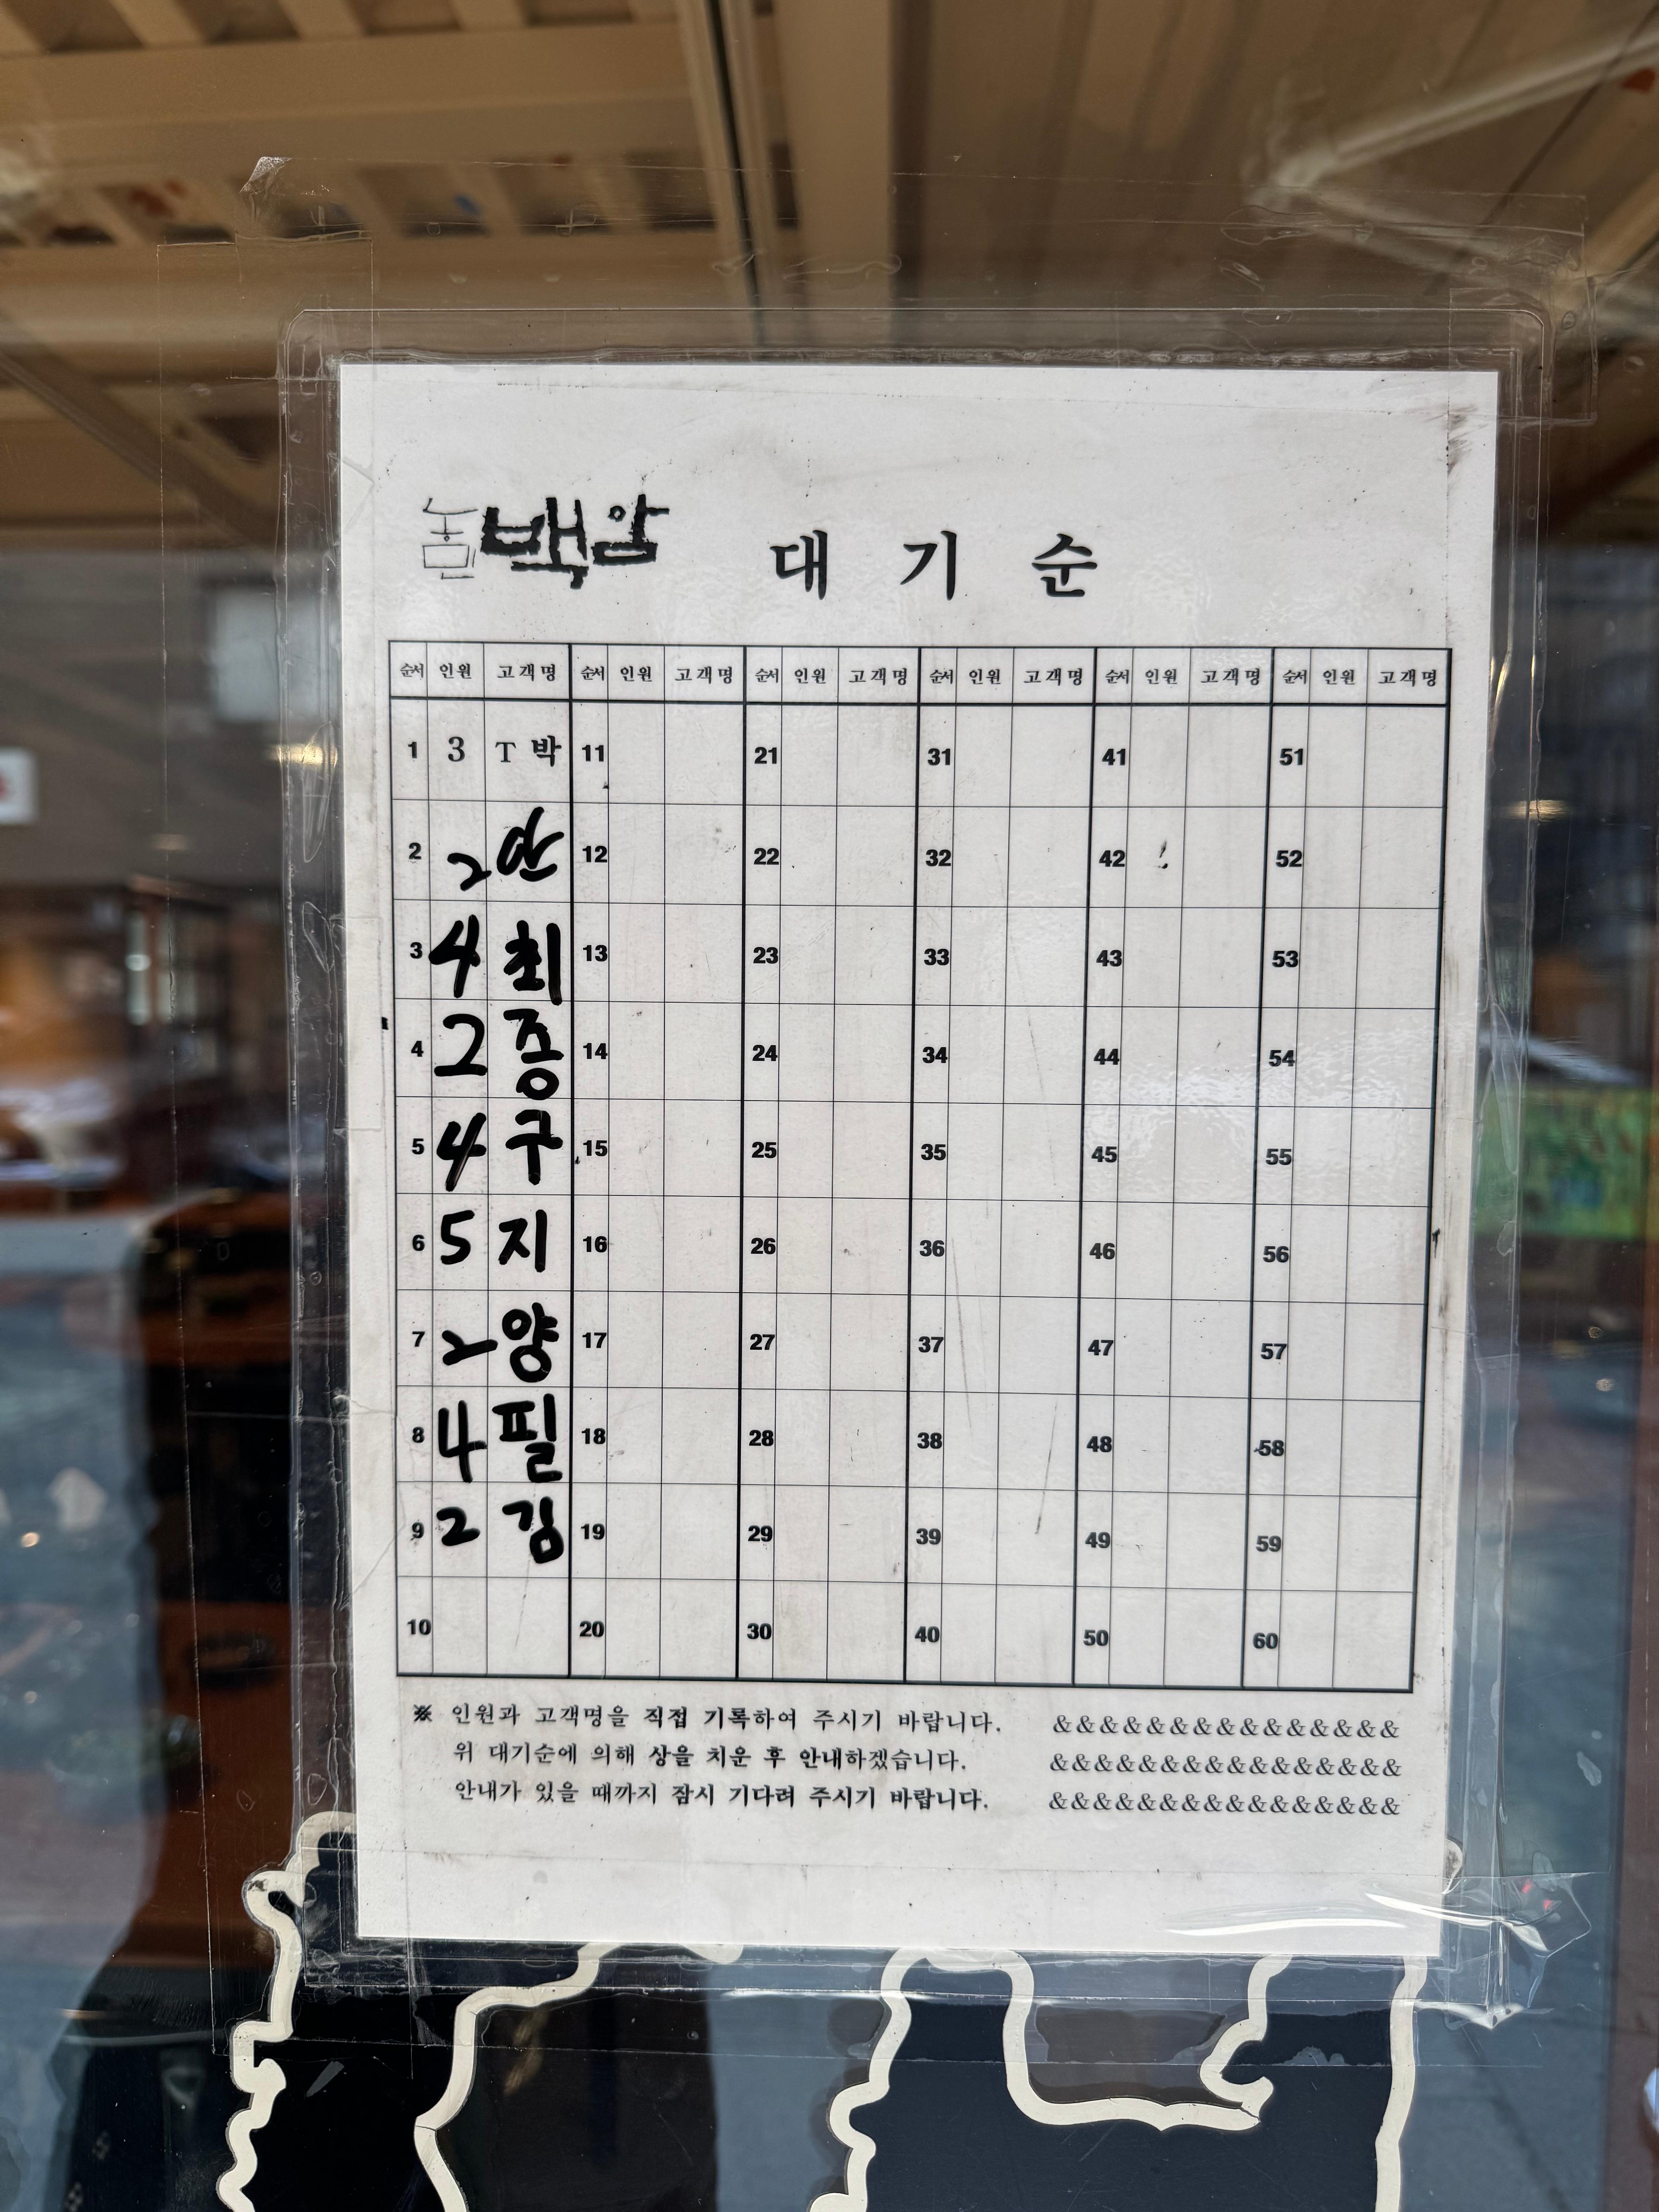 농민백암 대기순
순서 인원 고객명 순서 인원 고객명 순서 인원 고객명 순서 인원 고객명 순서 인원 고객명 순서 인원 고객명
1 3 T 박 11 21 31 41 51
2 2 안 12 22 32 42 52
3 4 최 13 23 33 43 53
4 2 증 14 24 34 44 54
5 4 구 15 25 35 45 55
6 5 지 16 26 36 46 56
7 2 양 17 27 37 47 57
8 4 필 18 28 38 48 58
9 2 김 19 29 39 49 59
10 20 30 40 50 60
※ 인원과 고객명을 직접 기록하여 주시기 바랍니다. &&&&&&&&&&&&&&&&
위 대기순에 의해 상을 치운 후 안내하겠습니다. &&&&&&&&&&&&&&&&
안내가 있을 때까지 잠시 기다려 주시기 바랍니다. &&&&&&&&&&&&&&&&